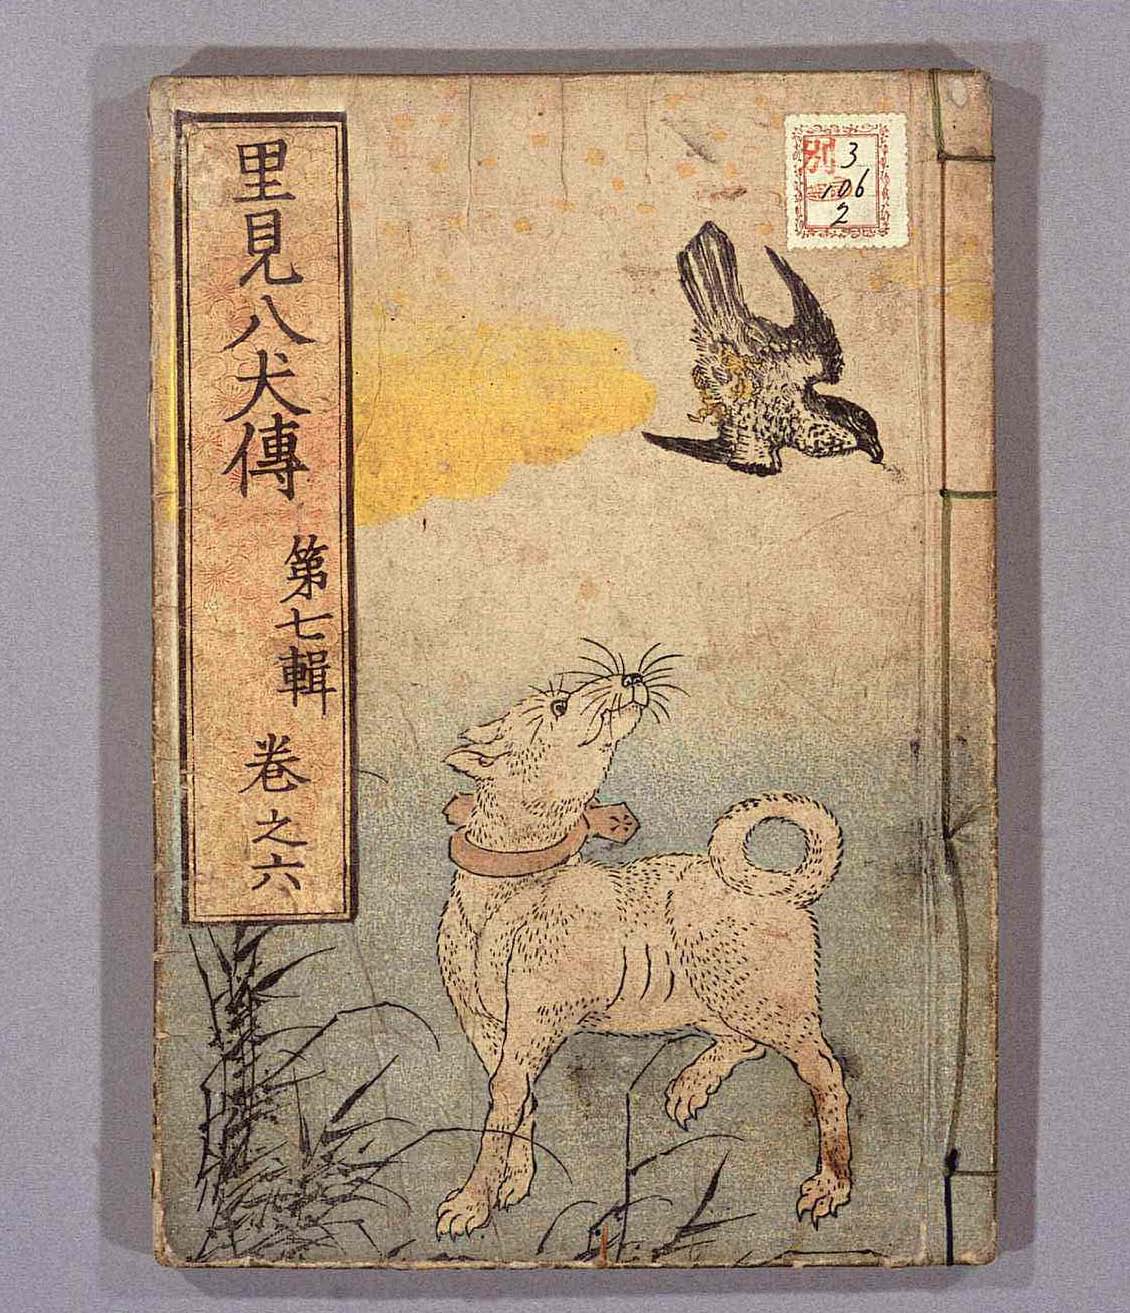 里見八犬傳
第七輯
巻之六
別 3
106
2